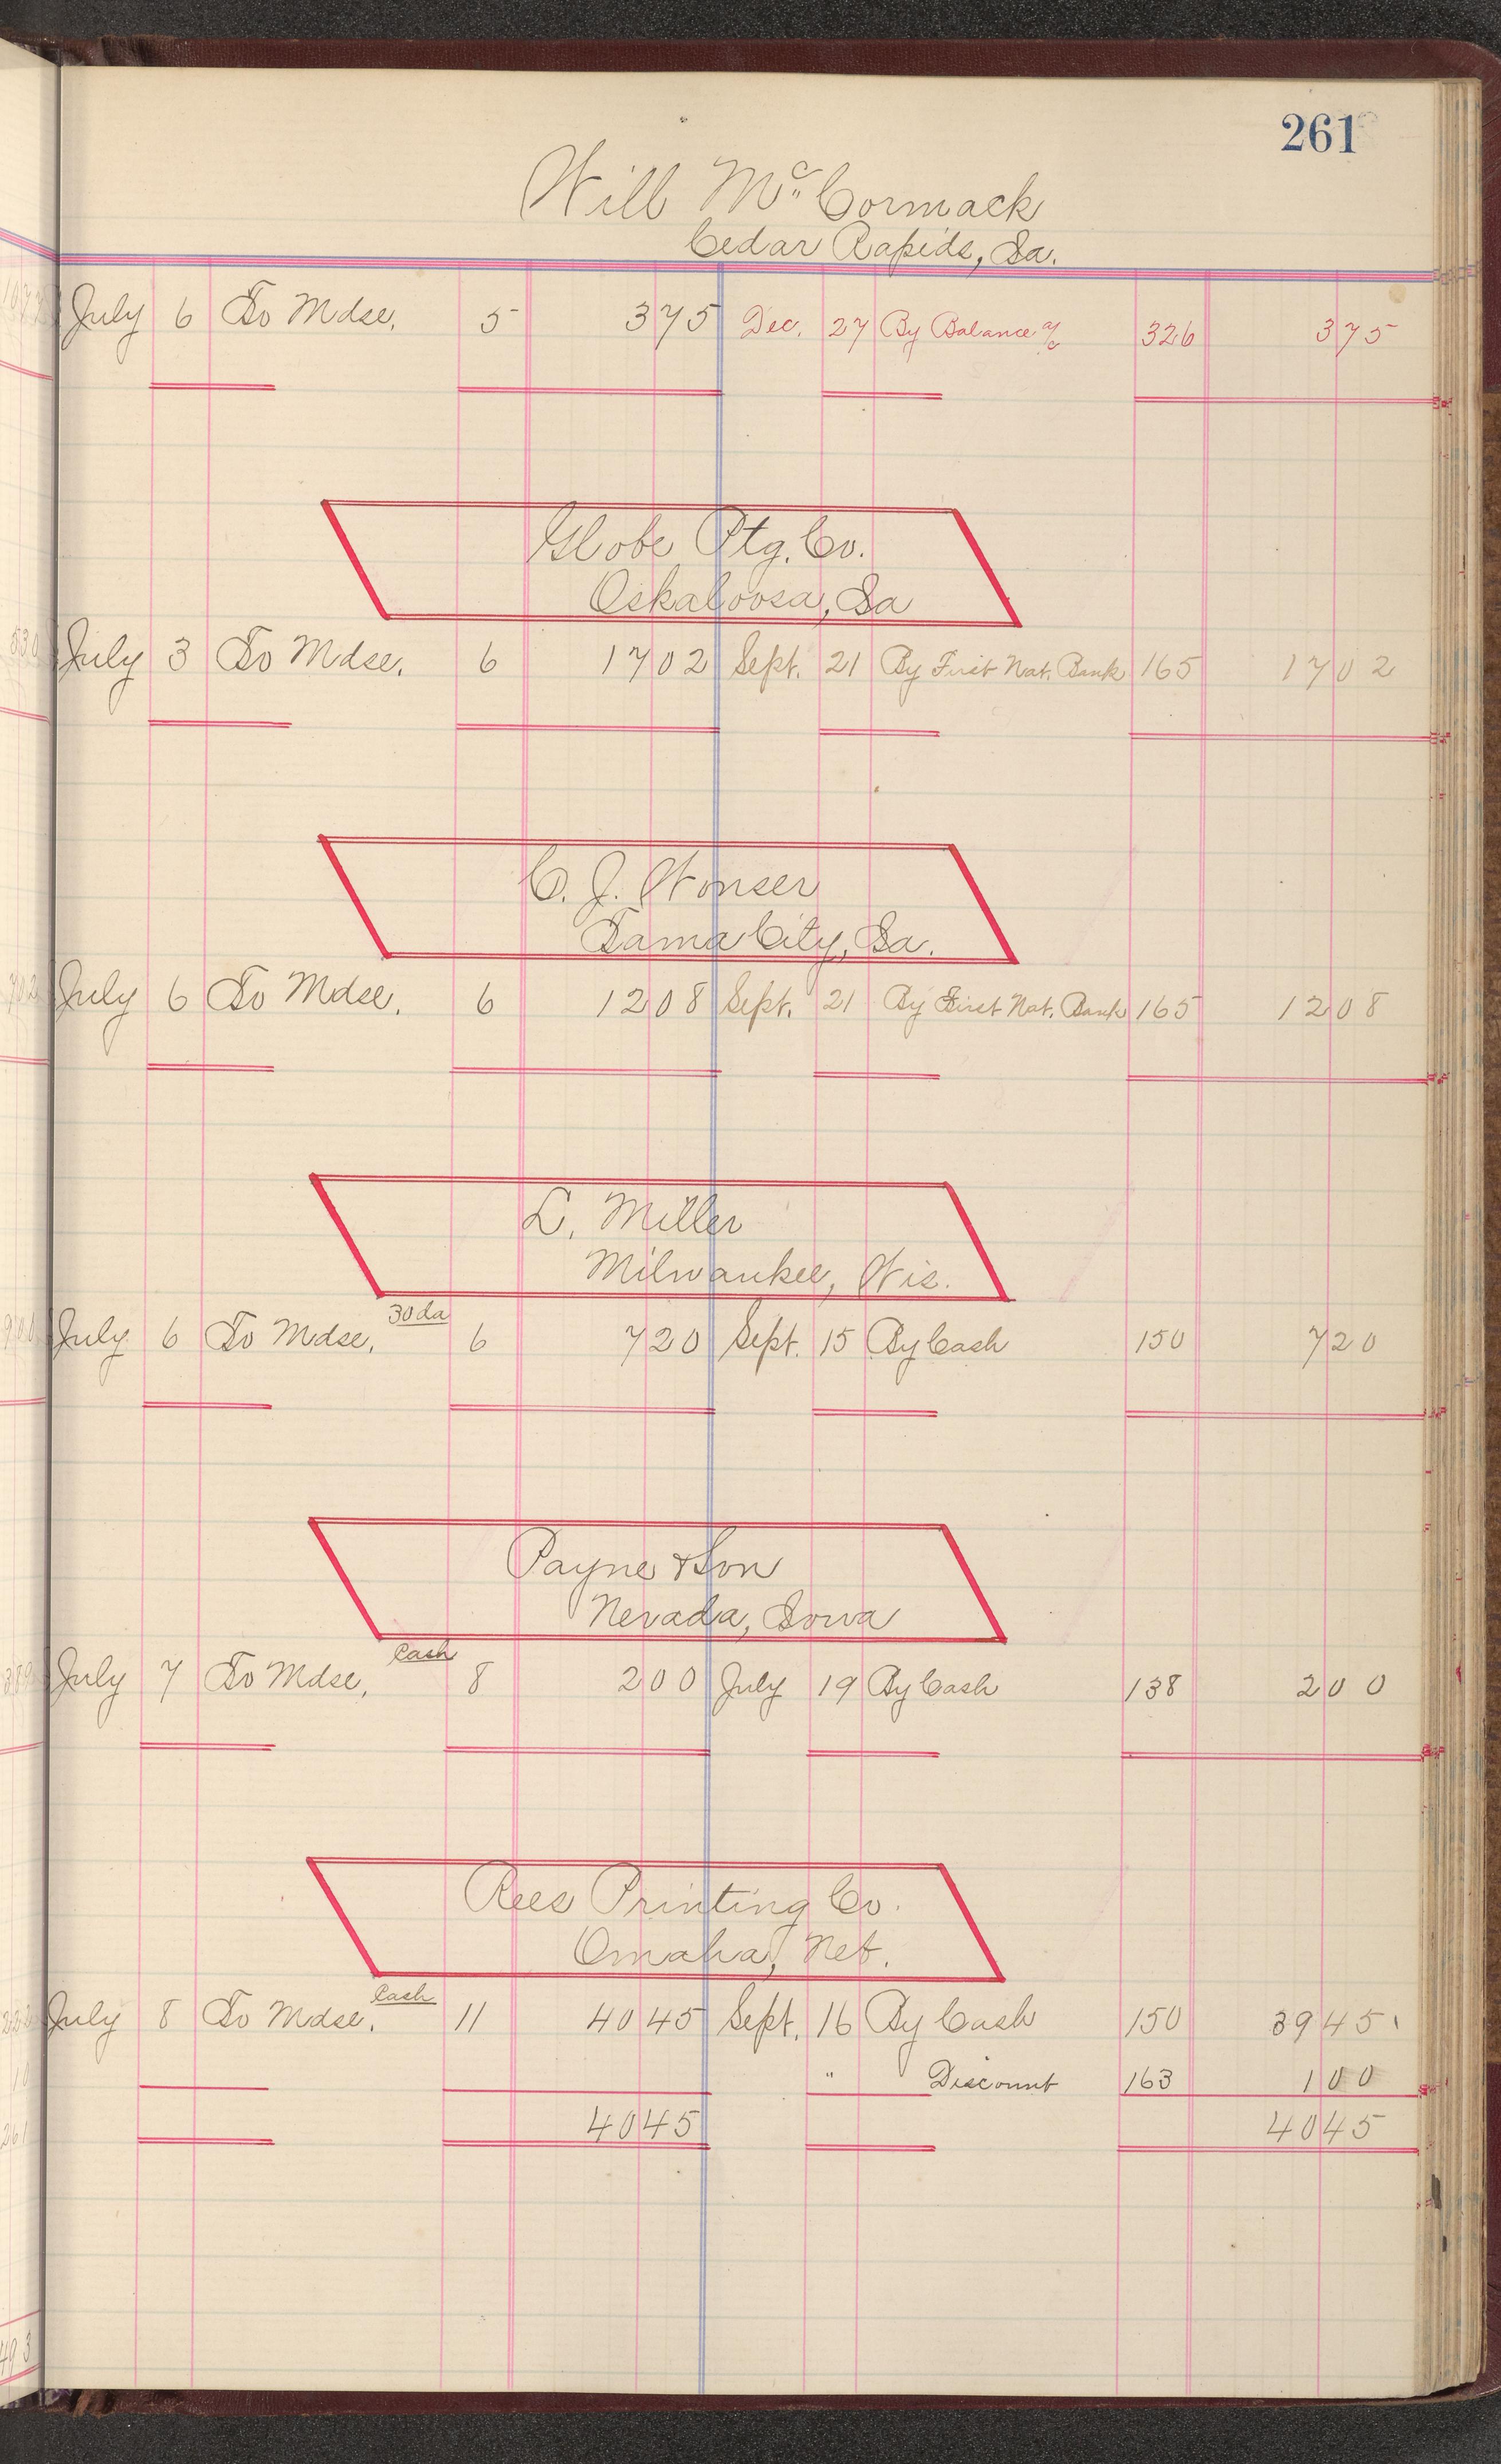 261
Will McCormack
Cedar Rapids, Ia.
July 6 To Mdse. 5 375 Dec. 27 By Balance a/c 326 375
Globe Ptg. Co.
Oskaloosa, Ia
July 3 To Mdse. 6 1702 Sept. 21 By First Nat. Bank 165 1702
C. J. Wonser
Tama City, Ia.
July 6 To Mdse. 6 1208 Sept. 21 By First Nat. Bank 165 1208
L. Miller
Milwaukee, Wis.
July 6 To Mdse. 30 da 6 720 Sept. 15 By Cash 150 720
Payne & Son
Nevada, Iowa
July 7 To Mdse. Cash 8 200 July 19 By Cash 138 200
Rees Printing Co.
Omaha, Neb.
July 8 To Mdse. Cash 11 4045 Sept. 16 By Cash 150 3945
" Discount 163 100
4045 4045